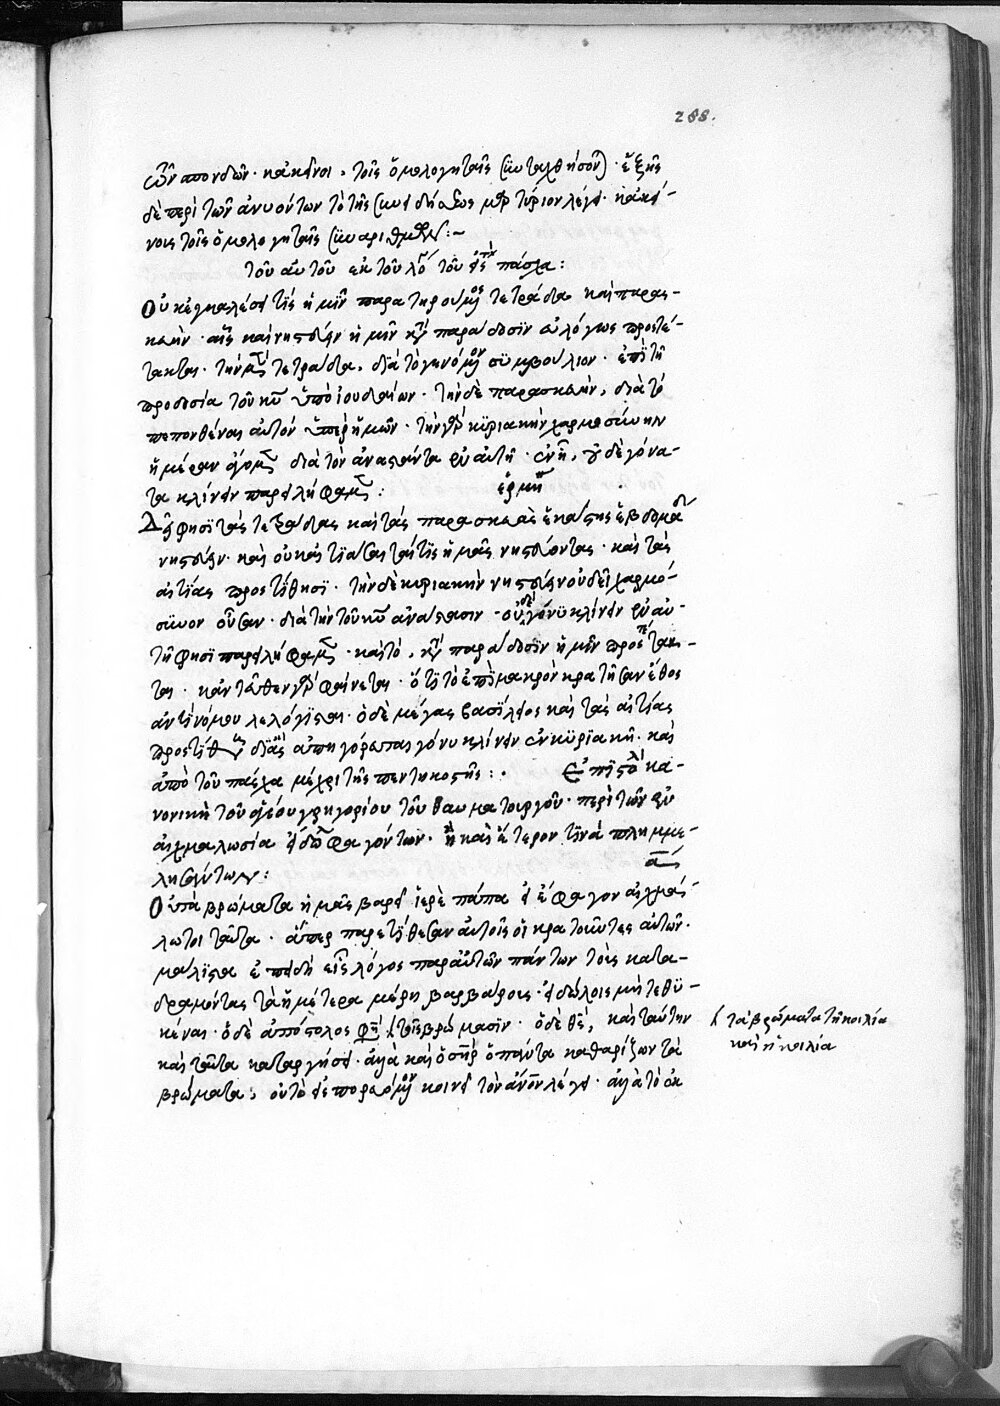 288.
τῶν σπονδῶν· κἀκεῖνοι, τοῖς ὁμολογηταῖς συνταχθήσονται· ἑξῆς
δὲ περὶ τῶν ἀνυόντων τὸ τῆς συνειδήσεως μαρτύριον λέγει· κἀκεί-
νους τοῖς ὁμολογηταῖς συναριθμεῖ:~
τοῦ αὐτοῦ ἐκ τοῦ λόγου τοῦ εἰς τὸ πάσχα:
Οὐκ ἐγκαλέσει τίς ἡμῖν παρατηρουμένοις τετράδα καὶ παρασ-
κευήν· αἷς καὶ νηστεύειν ἡμῖν κατὰ παράδοσιν εὐλόγως προστέ-
τακται· τὴν μὲν τετράδα, διὰ τὸ γενόμενον συμβούλιον· ἐπὶ τῇ
προδοσίᾳ τοῦ κυ ὑπὸ ἰουδαίων· τὴν δὲ παρασκευήν, διὰ τὸ
πεπονθέναι αὐτὸν ὑπὲρ ἡμῶν· τὴν γὰρ κυριακὴν χαρμοσύνην
ἡμέραν ἄγομεν διὰ τὸν ἀναστάντα ἐν αὐτῇ· ἐν ᾗ, οὐδὲ γόνα-
τα κλίνειν παρειλήφαμεν: ἑρμη
Δεῖ φησὶ τὰς τετράδας καὶ τὰς παρασκευὰς ἑκάστης ἑβδομάδος
νηστεύειν· καὶ οὐκ αἰτιάσεταί τις ἡμᾶς νηστεύοντας· καὶ τὰς
αἰτίας προστίθησι· τὴν δὲ κυριακὴν νηστεύειν οὐ δεῖ χαρμό-
συνον οὖσαν· διὰ τὴν τοῦ κυ ἀνάστασιν· οὐδὲ γόνυ κλίνειν ἐν αὐ-
τῇ φησὶ παρειλήφαμεν· καὶ τό, κατὰ παράδοσιν ἡμῖν προστέτακ-
ται· κἀντεῦθεν γὰρ φαίνεται· ὅτι τὸ ἐπὶ μακρὸν κρατῆσαν ἔθος
ἀντὶ νόμου λελόγισται· ὁ δὲ μέγας βασίλειος καὶ τὰς αἰτίας
προστίθησι δι' ἃς ἀπηγόρευται γόνυ κλίνειν ἐν κυριακῇ· καὶ
ἀπὸ τοῦ πάσχα μέχρι τῆς πεντηκοστῆς:. Ἐπιστολὴ κα-
νονικὴ τοῦ ἁγίου γρηγορίου τοῦ θαυματουργοῦ· περὶ τῶν ἐν
αἰχμαλωσίᾳ εἰδωλόθυτα φαγόντων· ἢ καὶ ἕτερόν τινα πλημμε-
λησάντων:
Οὐ τὰ βρώματα ἡμᾶς βαρεῖ ἱερὲ πάπα εἰ ἔφαγον αἰχμά-
λωτοι ταῦτα· ἅπερ παρετίθεσαν αὐτοῖς οἱ κρατοῦντες αὐτῶν·
μάλιστα ἐπειδὴ εἷς λόγος παρὰ πάντων τοὺς κατα-
δραμόντας τὰ ἡμέτερα μέρη βαρβάρους· εἰδώλοις μὴ τεθυ-
κέναι· ὁ δὲ ἀπόστολος φησὶ τοῖς βρώμασιν· ὁ δὲ θς, καὶ ταύτην
καὶ ταῦτα καταργήσει· ἀλλὰ καὶ ὁ σηρ ὁ πάντα καθαρίζων τὰ
βρώματα· οὐ τὸ εἰσπορευόμενον κοινοῖ τὸν ἄνον λέγει· ἀλλὰ τὸ ἐκ
τὰ βρώματα τῇ κοιλίᾳ
καὶ ἡ κοιλία